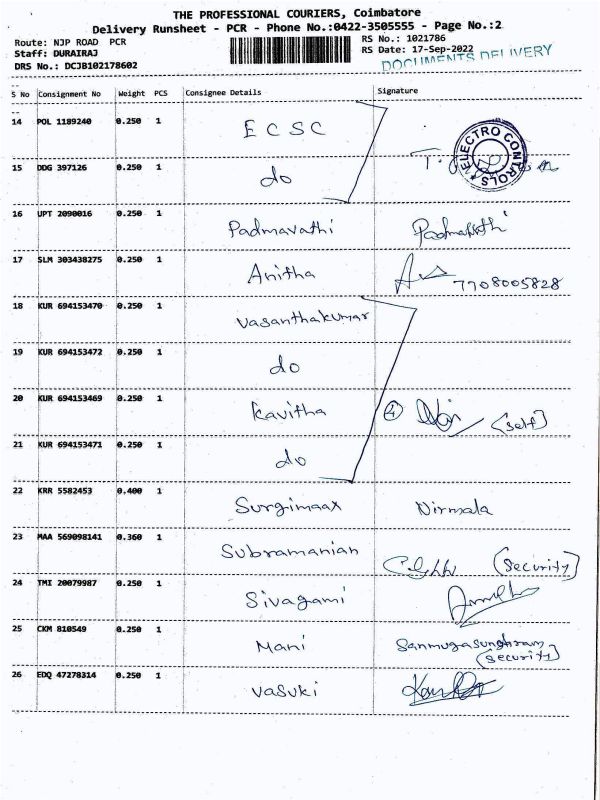 THE PROFESSIONAL COURIERS, Coimbatore
Delivery Runsheet - PCR - Phone No.:0422-3505555 - Page No.:2
Route: NJP ROAD PCR
RS No.: 1021786
Staff: DURAIRAJ
RS Date: 17-Sep-2022
DRS No.: DCJB102178602
DOCUMENTS DELIVERY
S No Consignment No Weight PCS Consignee Details Signature
14 POL 1189240 0.250 1 ECSC
ELECTRO CONTROLS
15 DDG 397126 0.250 1 do
16 UPT 2090016 0.250 1 Padmavathi Padmavathi
17 SLM 303438275 0.250 1 Anitha 7708005828
18 KUR 694153470 0.250 1 Vasanthakumar
19 KUR 694153472 0.250 1 do
20 KUR 694153469 0.250 1 Kavitha 4 (self)
21 KUR 694153471 0.250 1 do
22 KRR 5582453 0.400 1 Surgimaax Nirmala
23 MAA 569098141 0.360 1 Subramanian (Security)
24 TMI 20079987 0.250 1 Sivagami
25 CKM 810549 0.250 1 Mani Sanmugasunghram
(Security)
26 EDQ 47278314 0.250 1 Vasuki